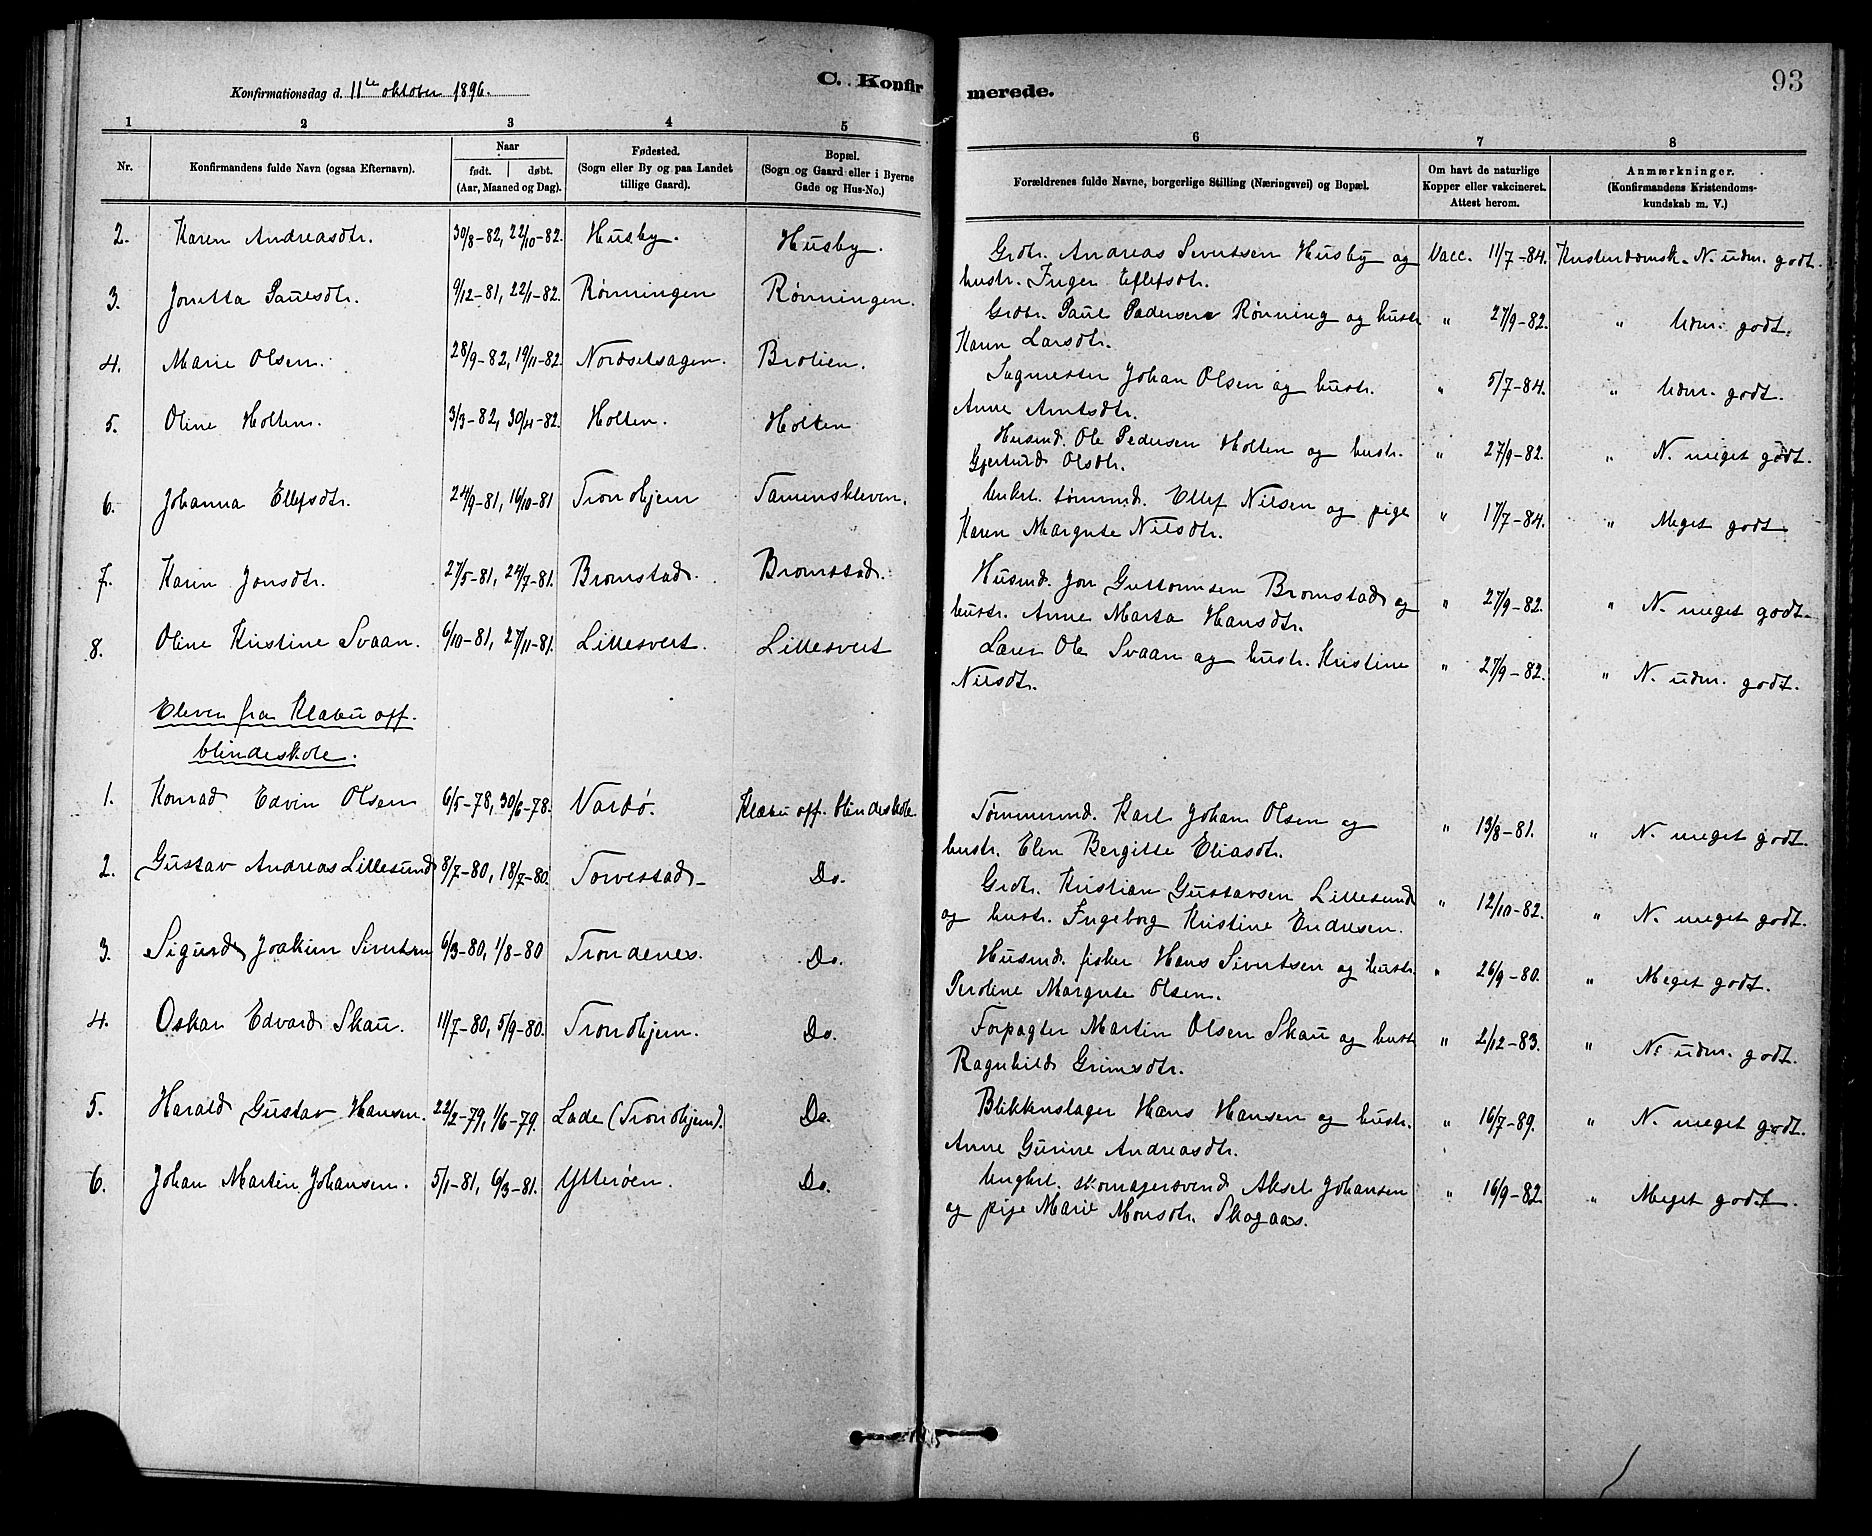 93
Konfirmationsdag d. 11te oktober 1896.
C. Konfirmerede.
1 2 3 4 5 6 7 8
Nr.
Konfirmandens fulde Navn (ogsaa Efternavn).
Naar
født. døbt.
(Aar, Maaned og Dag).
Fødested.
(Sogn eller By og paa Landet
tillige Gaard).
Bopæl.
(Sogn og Gaard eller i Byerne
Gade og Hus-No.)
Forældrenes fulde Navne, borgerlige Stilling (Næringsvei) og Bopæl.
Om havt de naturlige
Kopper eller vakcineret.
Attest herom.
Anmærkninger.
(Konfirmandens Kristendoms-
kundskab m. V.)
2. Karen Andreasdtr. 30/8-82, 22/10-82. Husby. Husby. Grdbr. Andreas Sivertsen Husby og Vacc. 11/7-84. Kristendomsk. N. udm. godt.
hustr. Inger Ellefsdtr.
3. Jonetta Paulsdtr. 9/12-81, 22/1-82. Rønningen Rønningen. Grdbr. Paul Pedersen Rønning og hustr. " 27/9-82. " Udm. godt.
Karen Larsdtr.
4. Marie Olsen. 28/9-82, 19/11-82. Nordsetsagen. Brolien. Sagmester Johan Olsen og hustr. " 5/7-84. " Udm. godt.
Anne Arntsdtr.
5. Oline Holten. 3/3-82, 30/4-82. Holten. Holten Husmd. Ole Pedersen Holten og hustr. " 27/9-82. " N. meget godt.
Gjertrud Olsdtr.
6. Johanna Ellefsdtr. 24/9-81, 16/10-81 Trondhjem Tanemskleven. Unkrl. tømmmd. Ellef Nilsen og pige " 17/7-84. " Meget godt.
Karen Margrete Nilsdtr.
7. Karen Jonsdtr. 27/5-81, 24/7-81. Bromstad. Bromstad. Husmd. Jon Guttormsen Bromstad og " 27/9-82. " N. meget godt.
hustr. Anne Marta Hansdtr.
8. Oline Kristine Svaan. 6/10-81, 27/11-81. Lillesvert. Lillesvert Lærer Ole Svaan og hustr. Kristine " 27/9-82. " N. udm. godt.
Nilsdtr.
Elever fra Klæbu off.
blindeskole.
1. Konrad Edvin Olsen 6/5-78, 30/6-78. Vardø. Klæbu off. blindeskole. Tømmermd. Karl Johan Olsen og " 13/8-81. " N. meget godt.
hustr. Elen Bergitte Eliasdtr.
2. Gustav Andreas Lillesund 8/7-80, 18/7-80. Torvestad Do. Grdbr. Kristian Gustavsen Lillesund " 12/10-82. " N. meget godt.
og hustr. Ingeborg Kristine Endresen.
3. Sigurd Joakim Sivertsen 6/3-80, 1/8-80 Trondenes. Do. Husmd. fisker Hans Sivertsen og hustr. " 26/9-80. " Meget godt.
Peroline Margrete Olsen.
4. Oskar Edvard Skau. 11/7-80, 5/9-80. Trondhjem. Do. Forpagter Martin Olsen Skau og hustr. " 2/12-83. " N. udm. godt.
Ragnhild Grimsdtr.
5. Harald Gustav Hansen. 22/2-79, 1/6-79. Lade (Trondhjem). Do. Blikkenslager Hans Hansen og hustr. " 16/7-89. " N. meget godt.
Anne Gurine Andreasdtr.
6. Johan Martin Johansen. 5/1-81, 6/3-81. Ytterøen. Do. Ungkrl. skomagersvend Aksel Johansen " 16/9-82 " Meget godt.
og pige Marie Monsdtr. Skogaas.